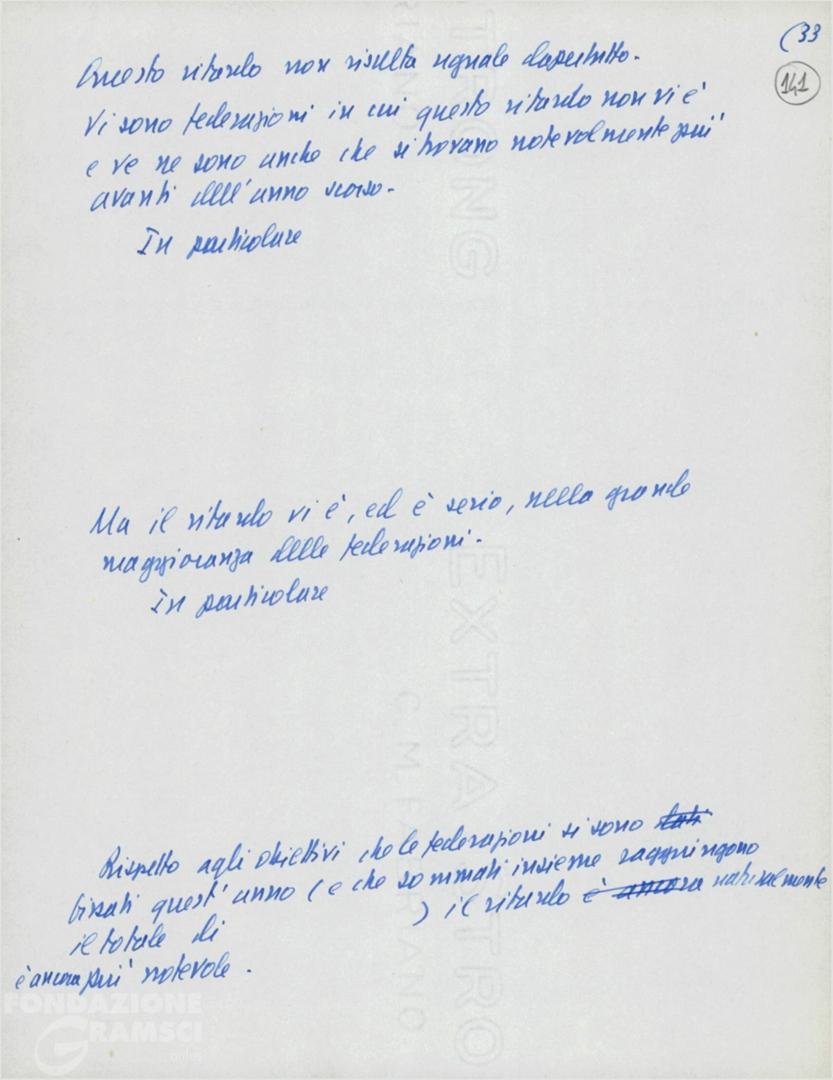 (33
141
Questo ritardo non risulta uguale dapertutto.
Vi sono federazioni in cui questo ritardo non vi è
e ve ne sono anche che si trovano notevolmente più
avanti dell'anno scorso.
In particolare
Ma il ritardo vi è, ed è serio, nella grande
maggioranza delle federazioni.
In particolare
Rispetto agli obiettivi che le federazioni si sono
fissati quest'anno (e che sommati insieme raggiungono
il totale di ) il ritardo è ancora naturalmente
è ancora più notevole.
STRONG EXTRA
C. M. FABRIANO
FONDAZIONE
GRAMSCI
onlus